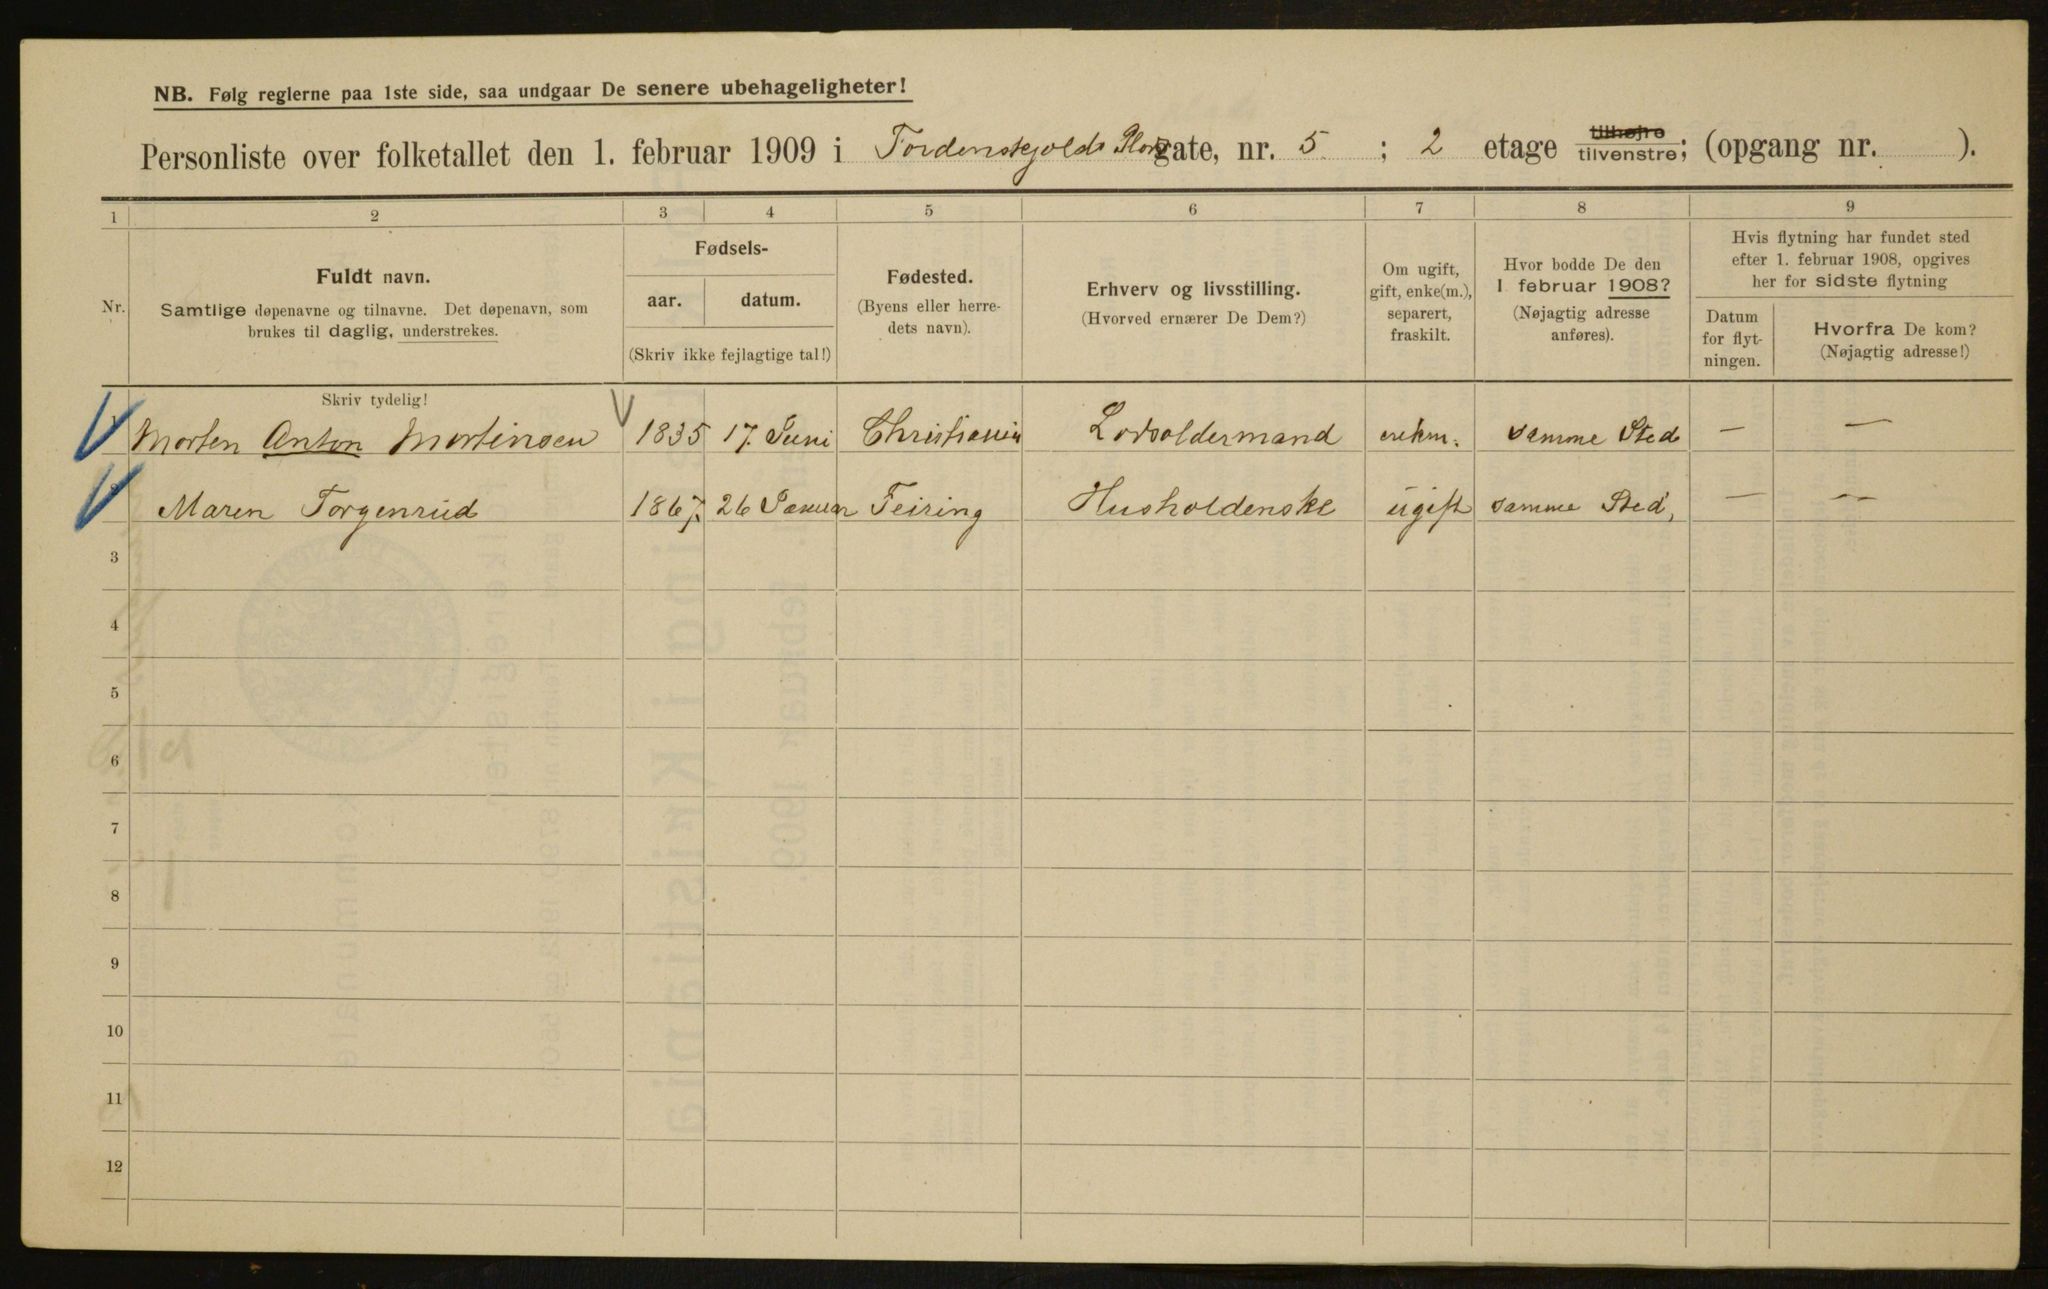 NB. Følg reglerne paa 1ste side, saa undgaar De senere ubehageligheter!
Personliste over folketallet den 1. februar 1909 i Tordenskjolds Plads gate, nr. 5 ; 2 etage tilhøjre tilvenstre; (opgang nr. ).
1 2 3 4 5 6 7 8 9
Nr.
Fuldt navn.
Samtlige døpenavne og tilnavne. Det døpenavn, som
brukes til daglig, understrekes.
Skriv tydelig!
Fødsels-
aar. datum.
(Skriv ikke fejlagtige tal!)
Fødested.
(Byens eller herre-
dets navn).
Erhverv og livsstilling.
(Hvorved ernærer De Dem?)
Om ugift,
gift, enke(m.),
separert,
fraskilt.
Hvor bodde De den
1 februar 1908?
(Nøjagtig adresse
anføres).
Hvis flytning har fundet sted
efter 1. februar 1908, opgives
her for sidste flytning
Datum
for flyt-
ningen.
Hvorfra De kom?
(Nøjagtig adresse!)
1 Morten Anton Mortinsen 1835 17. Juni Christiania Lodsoldermand enkm. samme Sted — —
2 Maren Torgenrud 1867. 26 Januar Feiring Husholdenske ugift samme Sted, — —
3
4
5
6
7
8
9
10
11
12